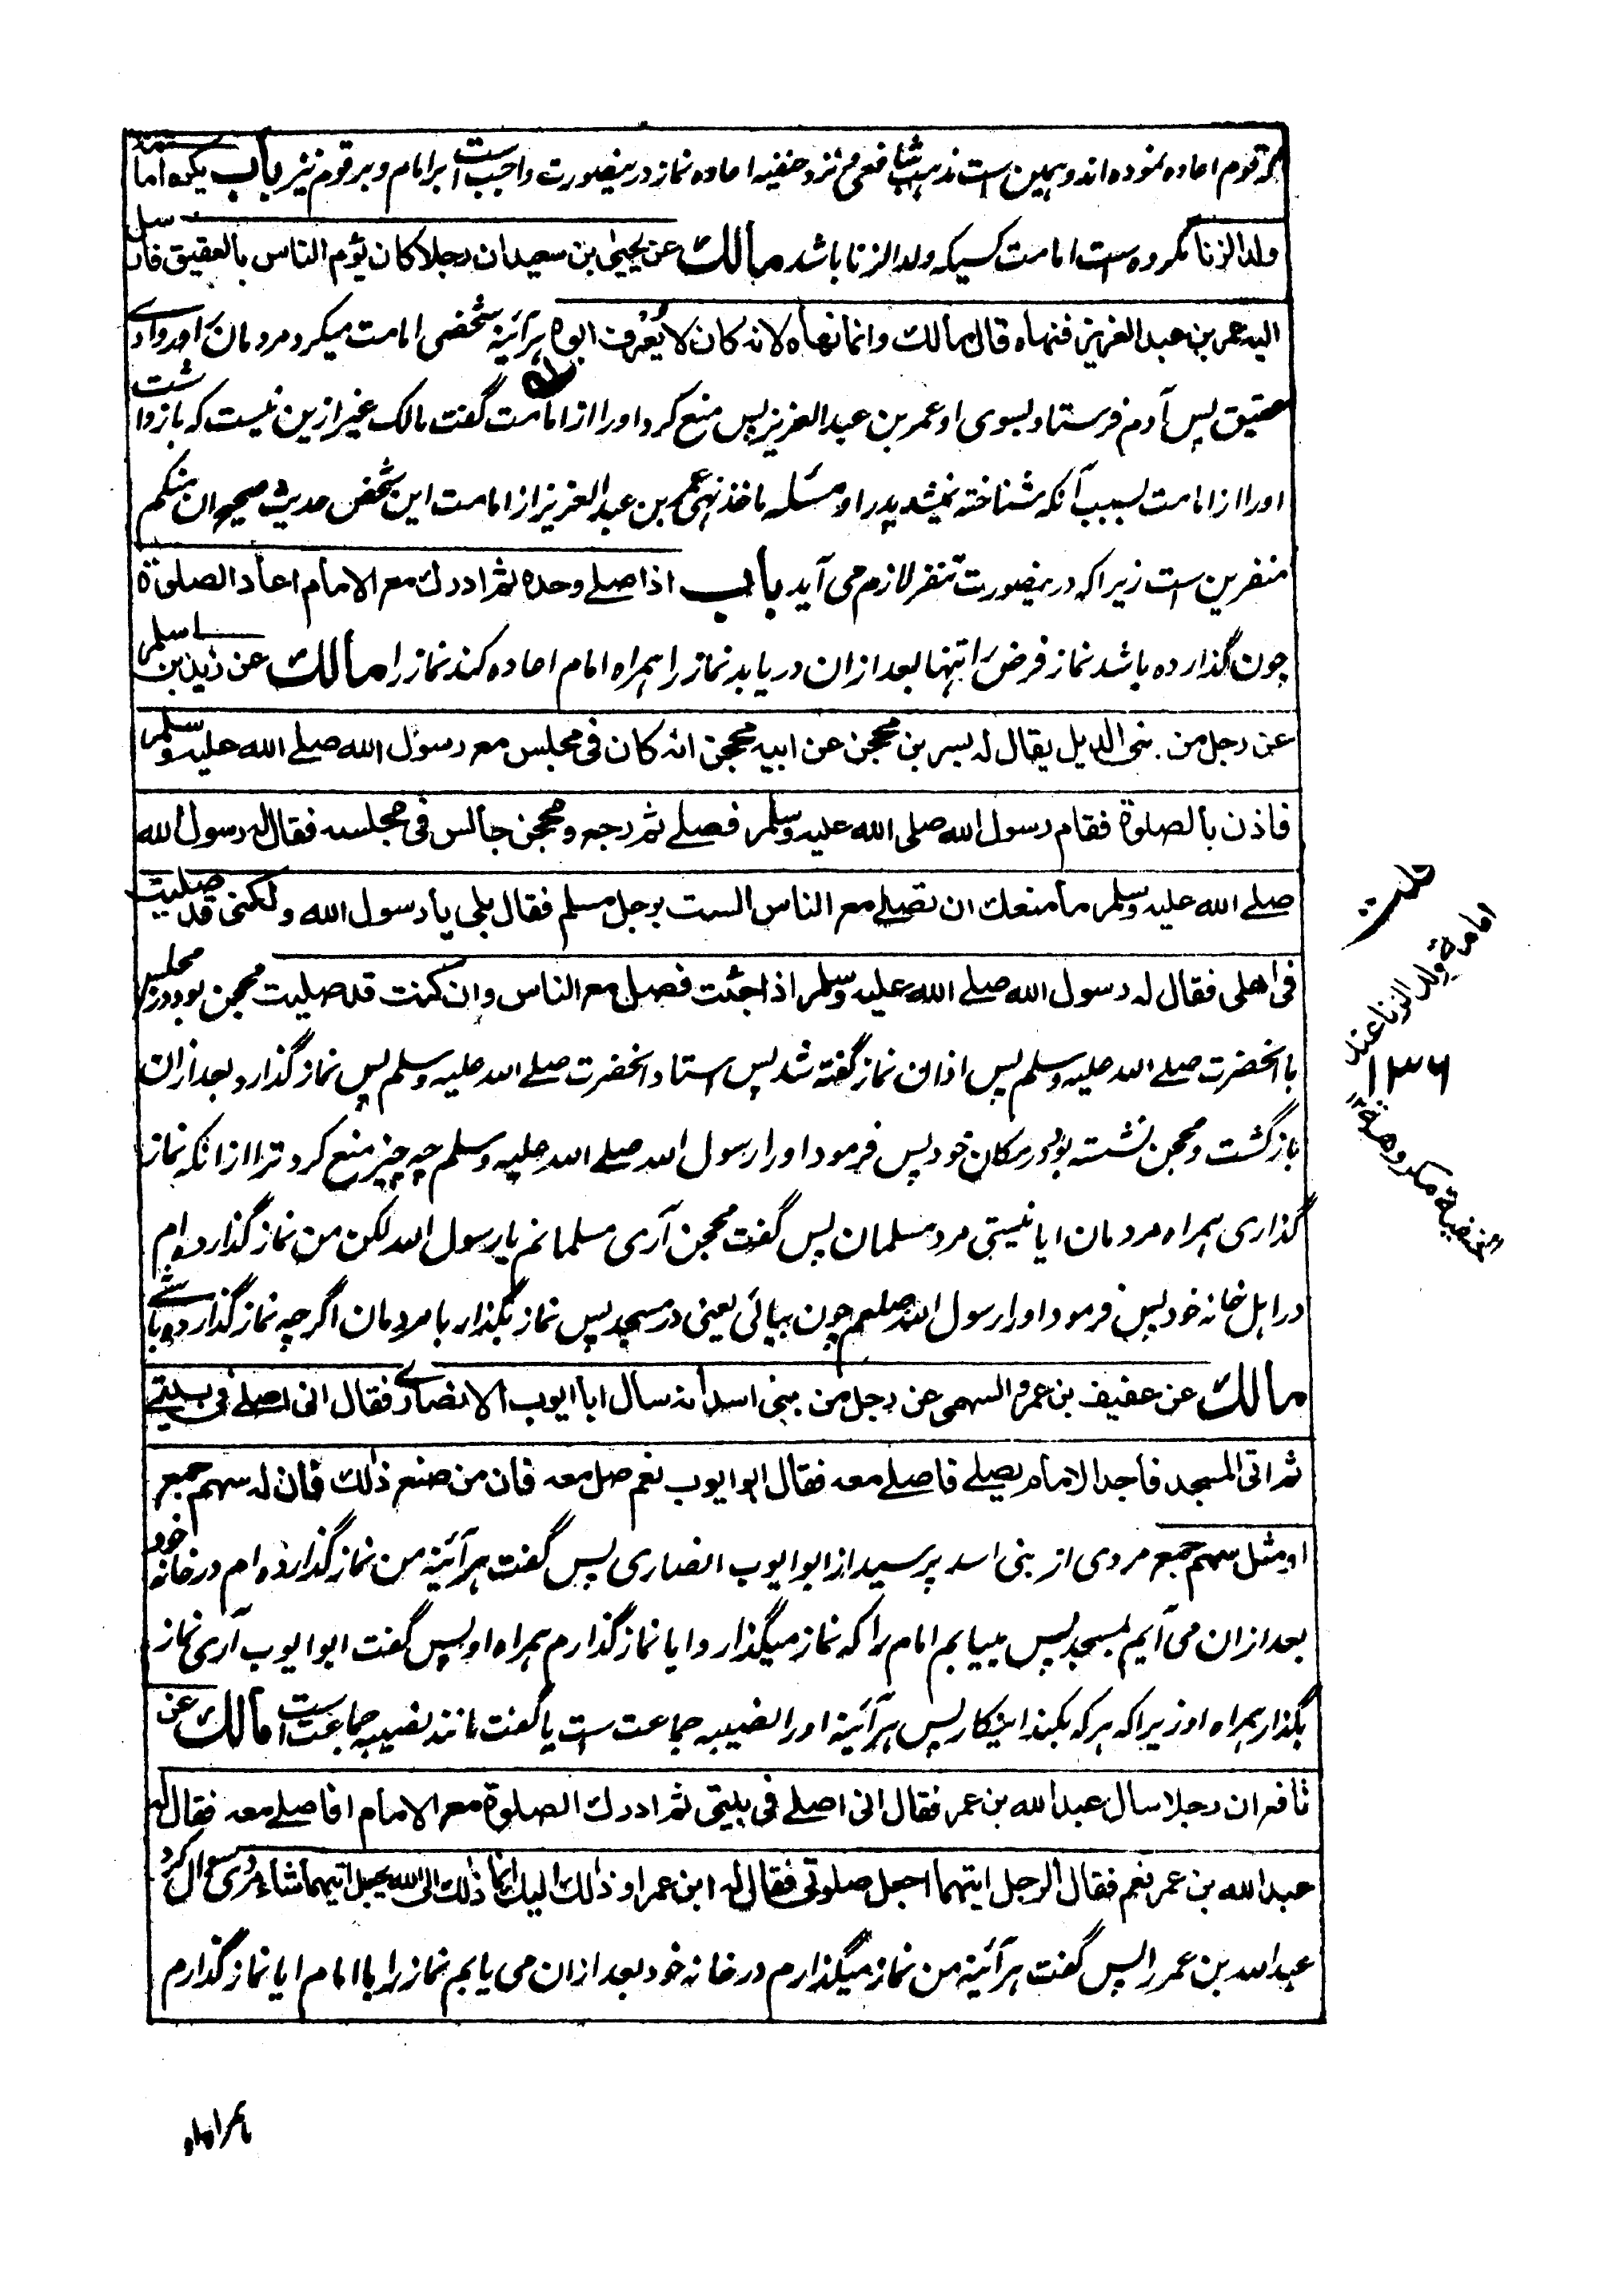 که قوم اعاده نموده اند و همین ست مذهب شافعی و نزد حنفیه اعاده نماز درینصورت واجب ست بر امام و بر قوم نیز باب یکره امامة
ولد الزنا مکروه ست امامت کسیکه ولد الزنا باشد مالك عن یحیی بن سعید ان رجلا کان یؤم الناس بالعقیق فارسل
الیه عمر بن عبد العزیز فنهاه قال مالك وانما نهاه لانه کان لا یُعرف ابوه هر آئینه شخصی امامت میکرد مردمان را در وادی
عقیق پس آدم فرستاد بسوی او عمر بن عبد العزیز پس منع کرد او را از امامت گفت مالک غیر ازین نیست که باز داشت
او را از امامت بسبب آنکه شناخته نمیشد پدر او مسئله ماخذ نهی عمر بن عبد العزیز از امامت این شخص حدیث صحیح ان منکم
منفرین ست زیرا که درینصورت تنفر لازم می آید باب اذا صلے وحده ثم ادرك مع الامام اعاد الصلوة
چون گذارده باشد نماز فرض را تنها بعد ازان دریابد نماز را همراه امام اعاده کند نماز را مالك عن زید بن اسلم
عن رجل من بنی الدیل یقال له بسر بن محجن عن ابیه محجن انه کان فی مجلس مع رسول الله صلے الله علیه وسلم
فاذن بالصلوة فقام رسول الله صلی الله علیه وسلم فصلے ثم رجع ومحجن جالس فی مجلسه فقال له رسول الله
صلے الله علیه وسلم ما منعك ان تصلے مع الناس الست برجل مسلم فقال بلی یا رسول الله ولکنی قد صلیت
فی اهلی فقال له رسول الله صلے الله علیه وسلم اذا جئت فصل مع الناس وان کنت قد صلیت محجن بود در مجلس
با آنحضرت صلے الله علیه وسلم پس اذان نماز گفته شد پس استاد آنحضرت صلے الله علیه وسلم پس نماز گذارد بعد ازان
باز گشت و محجن نشسته بود در مکان خود پس فرمود او را رسول الله صلے الله علیه وسلم چه چیز منع کرد ترا از آنکه نماز
گذاری همراه مردمان ایا نیستی مرد مسلمان پس گفت محجن آری مسلمانم یا رسول الله لکن من نماز گذارده ام
در اهل خانه خود پس فرمود او را رسول الله صلعم چون بیائی یعنی در مسجد پس نماز بگذار با مردمان اگرچه نماز گذارده باشے
مالك عن عفیف بن عمرو السهمی عن رجل من بنی اسد انه سال ابا ایوب الانصاری فقال انی اصلے فی بیتی
ثم اتی المسجد فاجد الامام یصلے فاصلے معه فقال ابو ایوب نعم صل معه فان من صنع ذلك فان له سهم جمع
او مثل سهم جمع مردی از بنی اسد پرسید از ابو ایوب انصاری پس گفت هر آئینه من نماز گذارده ام در خانه خود
بعد ازان می آیم بمسجد پس مییابم امام را که نماز میگذارد ایا نماز گذارم همراه او پس گفت ابو ایوب آری نماز
بگذار همراه او زیرا که هر که بکند اینکار پس هر آئینه او را نصیبه جماعت ست یا گفت مانند نصیبه جماعت ست مالك عن
نافع ان رجلا سال عبد الله بن عمر فقال انی اصلے فی بیتی ثم ادرك الصلوة مع الامام افاصلے معه فقال له
عبد الله بن عمر نعم فقال الرجل ایتهما اجعل صلوتی فقال له ابن عمر او ذلك الیك انما ذلك الی الله یجعل ایتهما شاء مردی سوال کرد
عبد الله بن عمر را پس گفت هر آئینه من نماز میگذارم در خانه خود بعد ازان می یابم نماز را با امام ایا نماز گذارم
قلت
امامة ولد الزنا عند
الحنفیة مکروهة ۱۲
۱۳۶